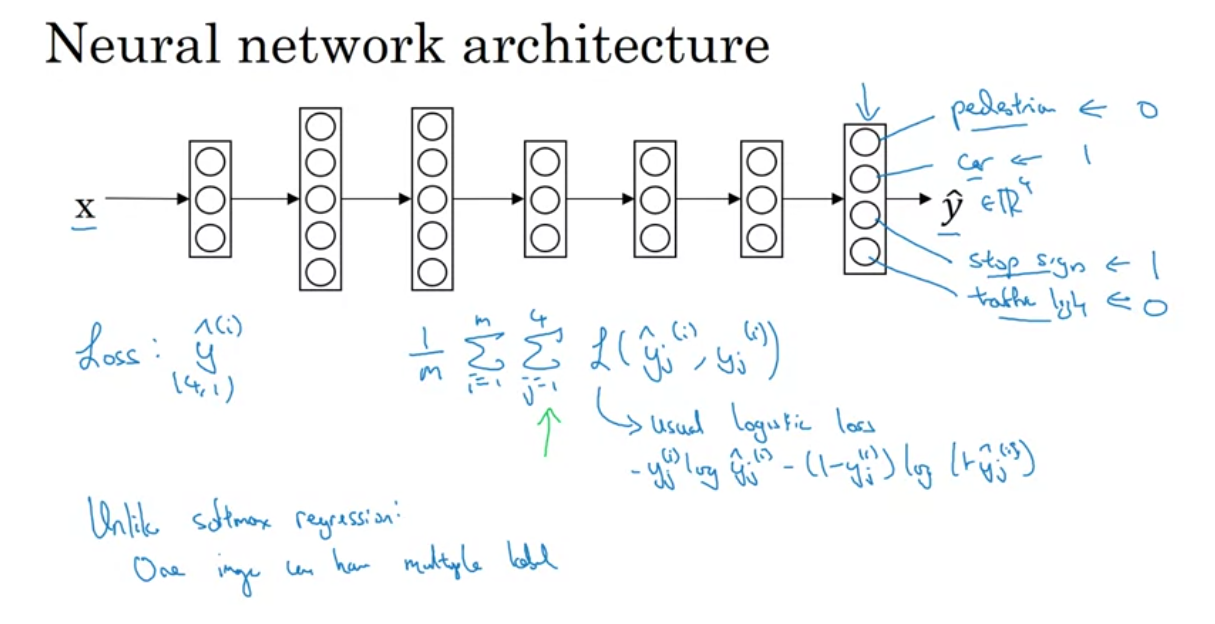 Neural network architecture
pedestrian ← 0
car ← 1
x
ŷ ∈ ℝ⁴
stop sign ← 1
traffic light ← 0
Loss: ŷ^(i)
(4,1)
1/m Σ_{i=1}^{m} Σ_{j=1}^{4} L(ŷ_j^(i), y_j^(i))
↳ usual logistic loss
- y_j^(i) log ŷ_j^(i) - (1-y_j^(i)) log (1-ŷ_j^(i))
Unlike softmax regression:
One image can have multiple label